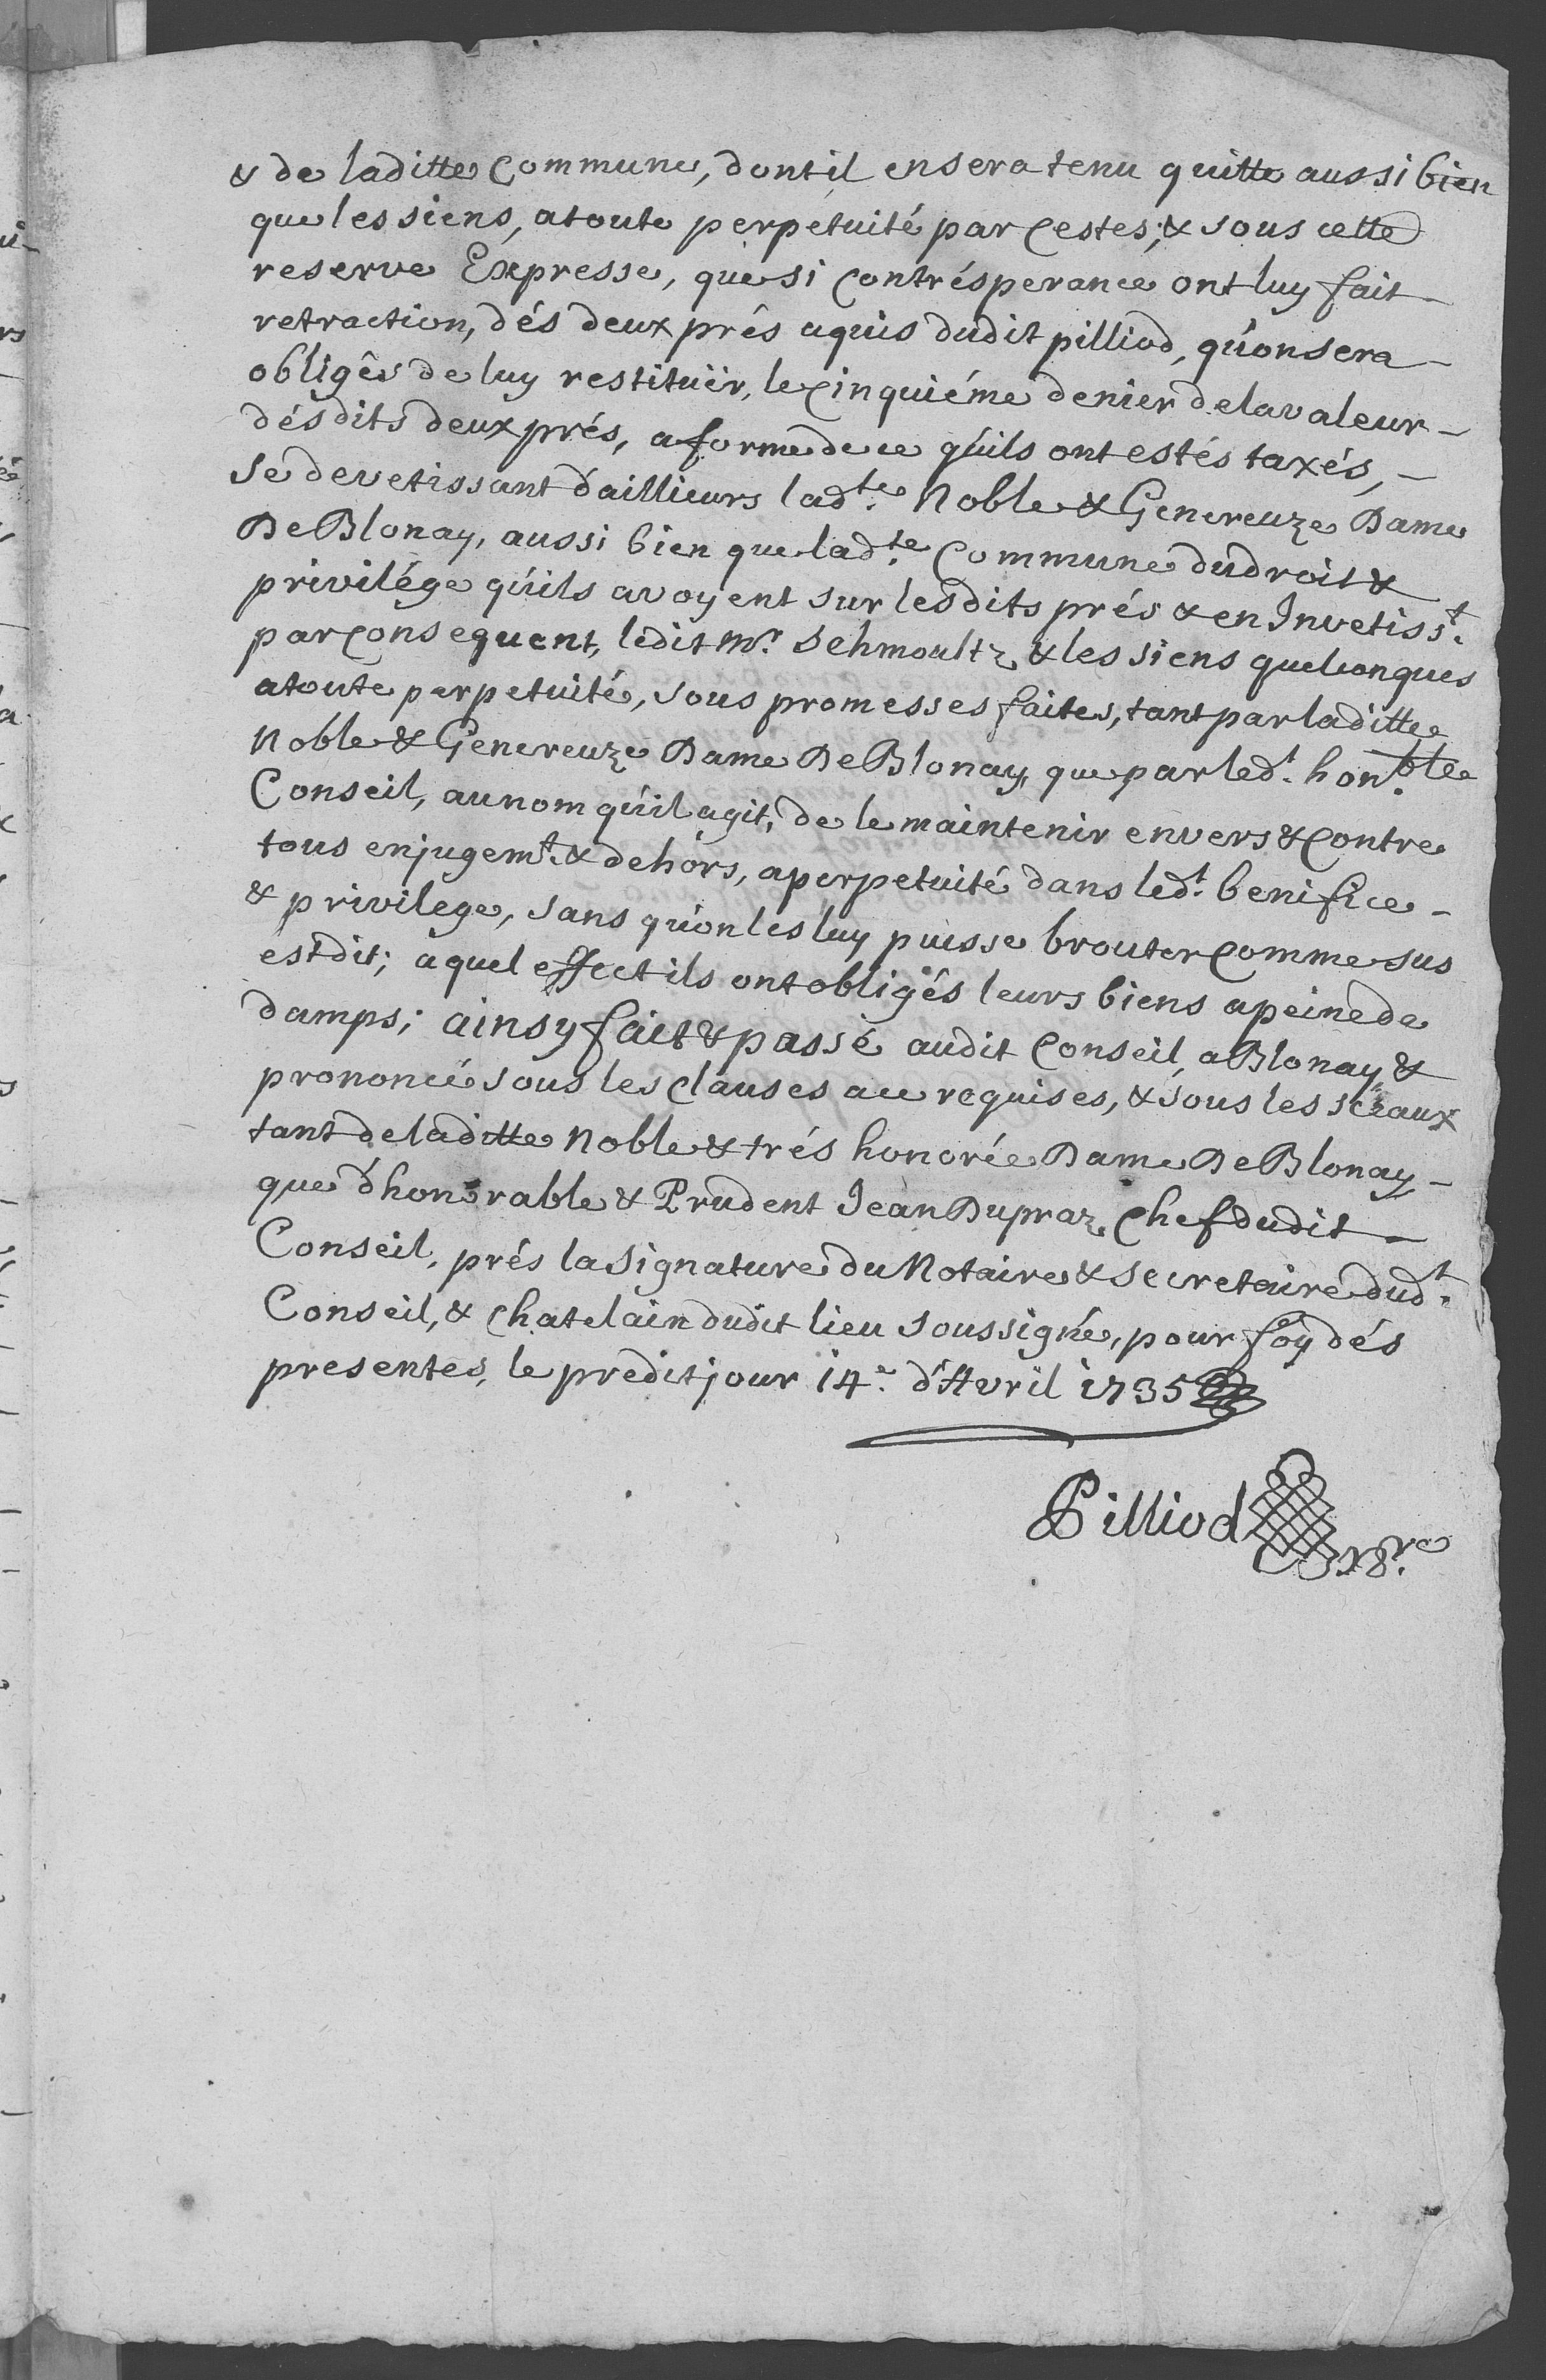 & de laditte Commune, dont il en sera tenu quitte aussi bien
que les siens, a toute perpetuité par Cestes; & sous cette
reserve Expresse, que si Contrésperance ont luy fait –
retraction, dés deux prés aquis dudit pilliod, qu'on sera –
obligês de luy restituër, le Cinquiéme denier de la valeur –
désdits deux prés, a forme de ce qu'ils ont estés taxés, –
se devetissant d'aillieurs lad.te Noble & Genereuze Dame
De Blonay, aussi bien que lad.te Commune du droit &
privilége qu'ils avoyent sur lesdits prés & en Invetiss.t
par Consequent, ledit Mr. Schmoultz & les siens quelconques
a toute perpetuité, sous promesses faites, tant par laditte
Noble & Genereuze Dame De Blonay, que par led.t hon.ble
Conseil, au nom qu'il agit, de le maintenir envers & Contre
tous en jugem.t & dehors, a perpetuité dans led.t benifice –
& privilege, sans qu'on les luy puisse brouter Comme sus
est dit; à quel effect ils ont obligés leurs biens a peine de
damps; ainsy fait & passé audit Conseil, a Blonay, &
prononcé sous les Clauses a ce requises, & sous les sceaux
tant de laditte Noble & trés honorée Dame De Blonay –
que d'honorable & Prudent Jean Dupraz Chef dudit –
Conseil, prés la signature du Notaire & secretaire dud.t
Conseil, & Chatelain dudit lieu soussigné, pour foy dés
presentes, le predit jour 14.e d'Avril 1735
Pilliod